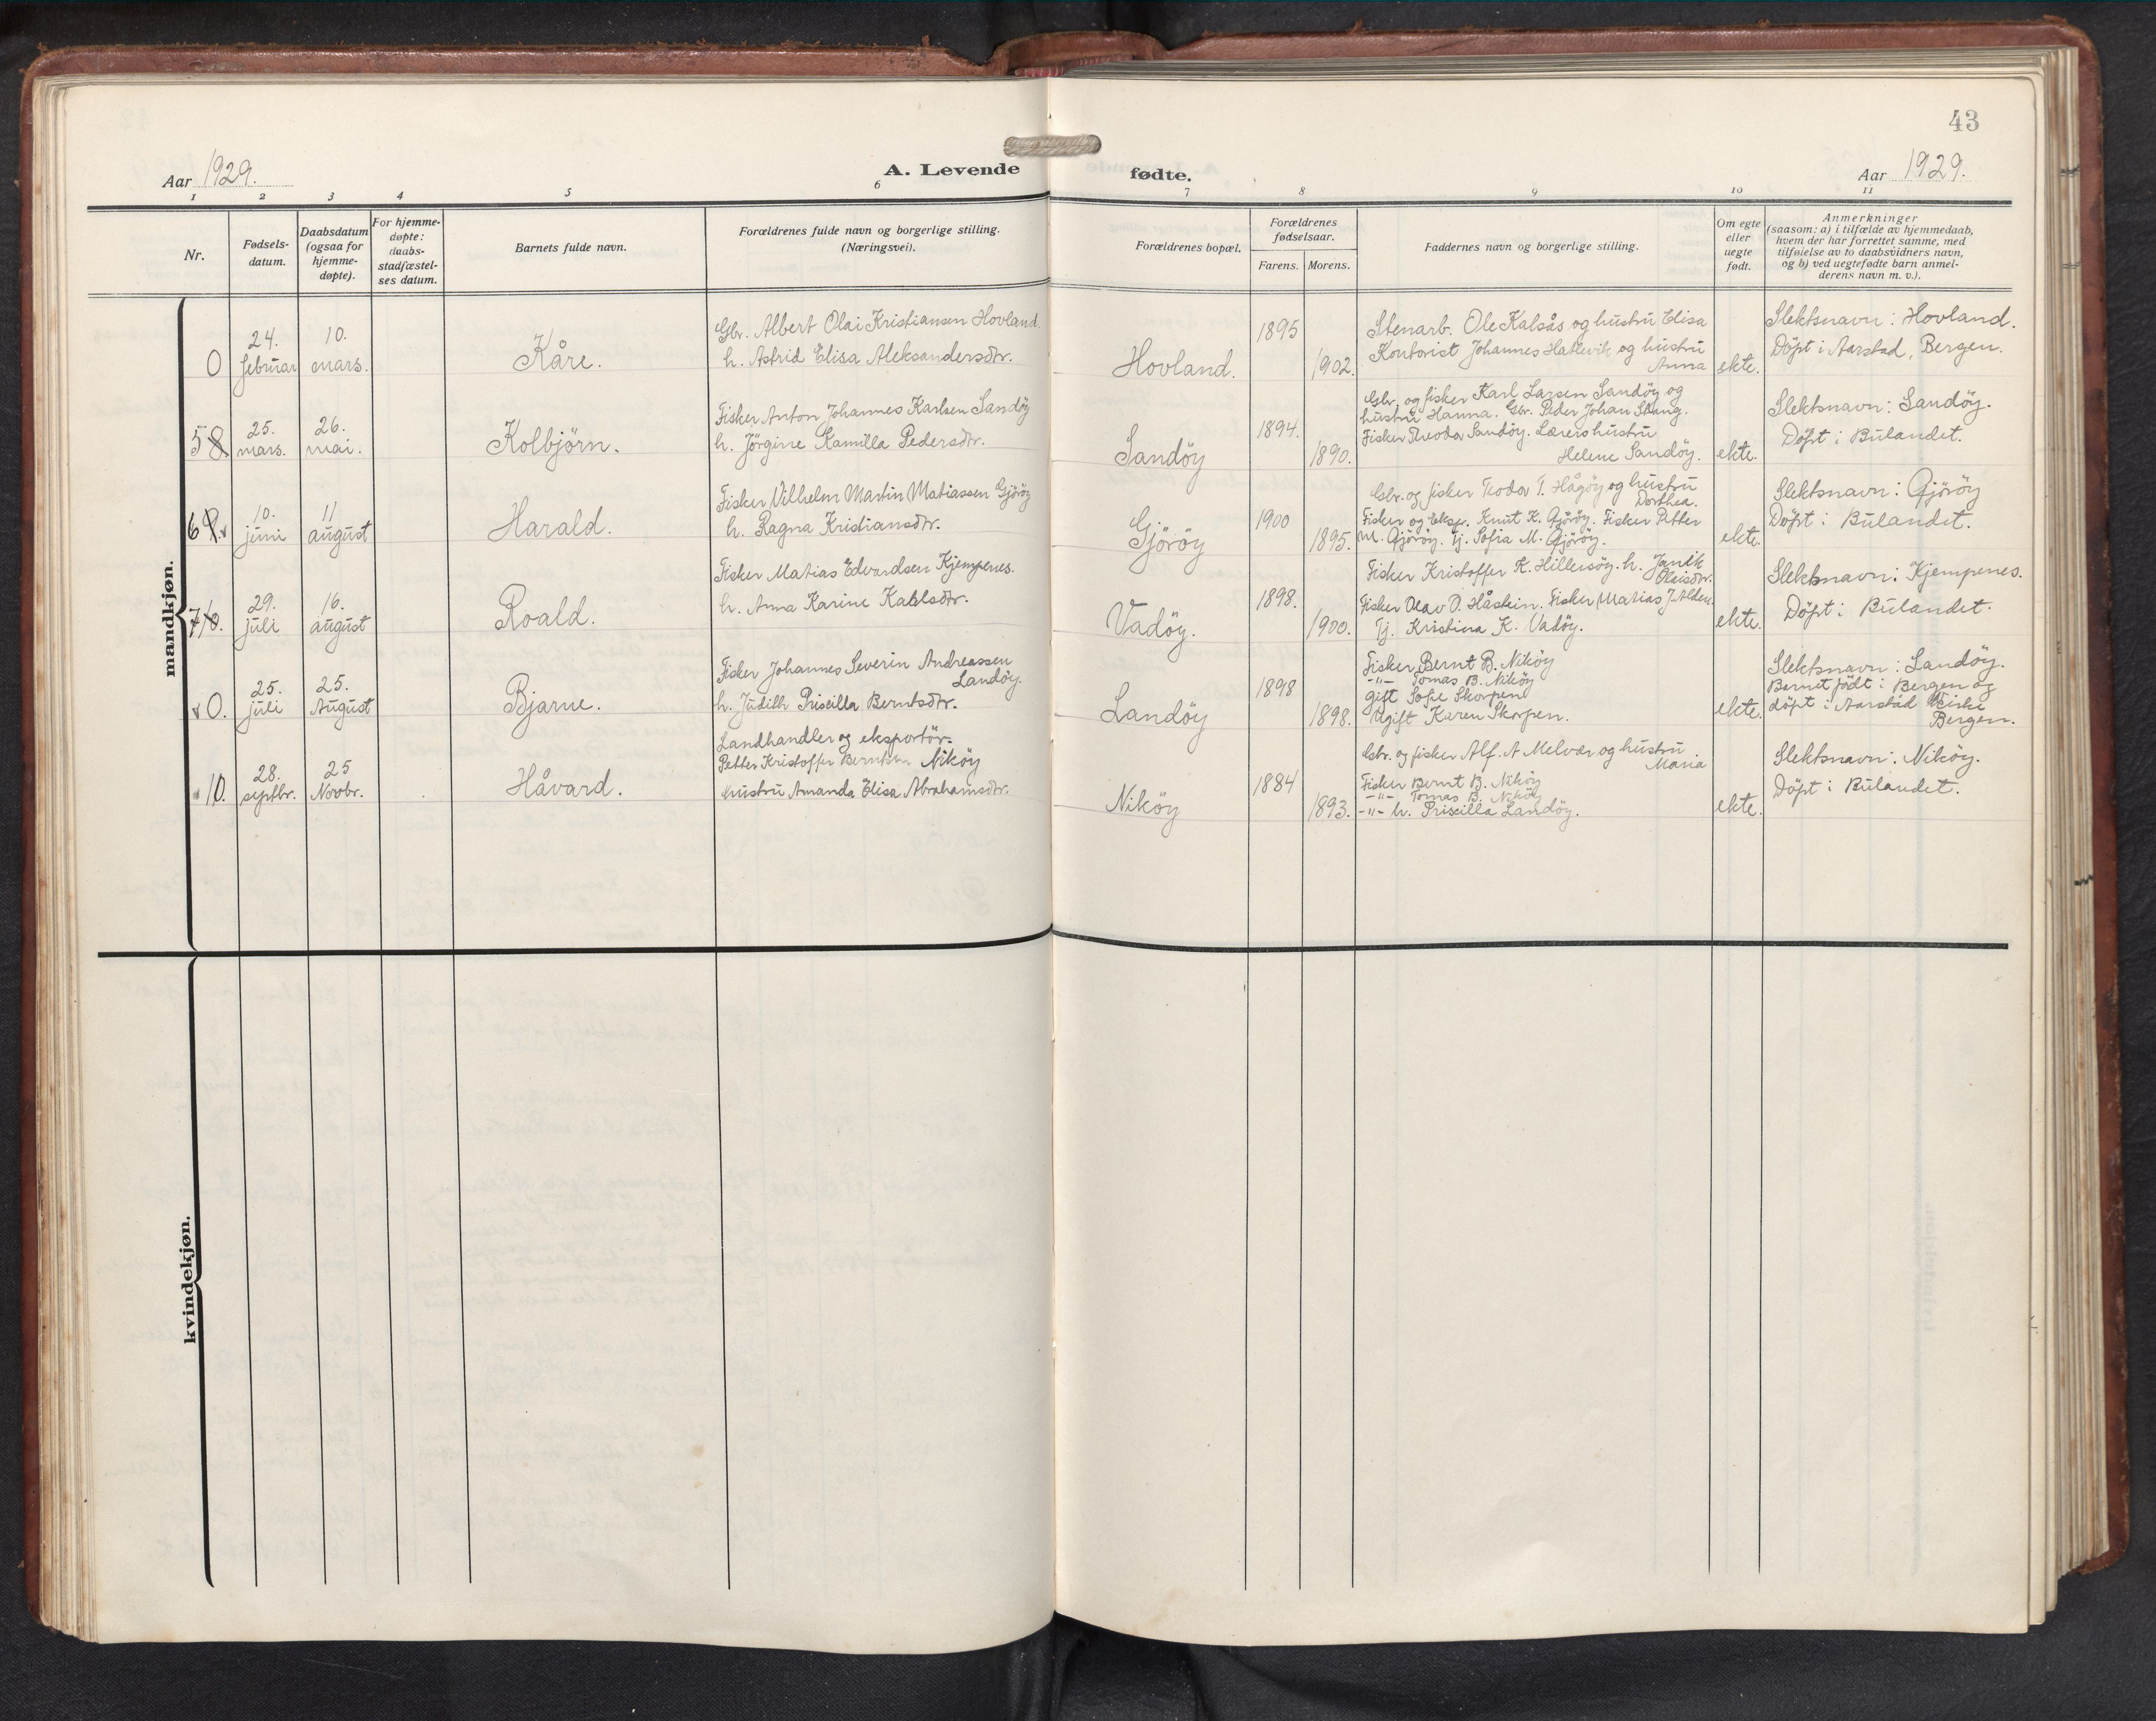 43
Aar 1929.
A. Levende fødte.
Aar 1929.
1 2 3 4 5 6 7 8 9 10 11
Nr.
Fødsels-
datum.
Daabsdatum
(ogsaa for
hjemme-
døpte).
For hjemme-
døpte:
daabs-
stadfæstel-
ses datum.
Barnets fulde navn.
Forældrenes fulde navn og borgerlige stilling.
(Næringsvei).
Forældrenes bopæl.
Forældrenes
fødselsaar.
Farens. Morens.
Faddernes navn og borgerlige stilling.
Om egte
eller
uegte
født.
Anmerkninger
(saasom: a) i tilfælde av hjemmedaab,
hvem der har forrettet samme, med
tilføielse av to daabsvidners navn,
og b) ved uegtefødte barn anmel-
derens navn m. v.).
mandkjøn.
0
24.
februar
10.
mars.
Kåre.
Gbr. Albert Olai Kristiansen Hovland.
h. Astrid Elisa Aleksandersdtr.
Hovland.
1895
1902.
Stenarb. Ole Kalsås og hustru Elisa
Kontorist Johannes Hatlevik og hustru
Anna
ekte.
Slektsnavn: Hovland.
Döpt i Aarstad, Bergen.
5 8
25.
mars.
26.
mai.
Kolbjörn.
Fisker Anton Johannes Karlsen Sandöy
h. Jörgine Kamilla Pedersdtr.
Sandöy
1894.
1890.
Gbr. og fisker Karl Larsen Sandöy og
hustru Hanna. Gbr. Peder Johan Stang.
Fisker Theodor Sandöy. Lærers hustru
Helene Sandöy.
ekte.
Slektsnavn: Sandöy.
Döpt i Bulandet.
6 9.
10.
juni
11
august
Harald.
Fisker Vilhelm Martin Matiassen Gjöröy
h. Ragna Kristiansdtr.
Gjöröy
1900
1895.
Gbr. og fisker Teodor T. Hågöy og hustru
Dorthea.
Fisker og eksp. Knut K. Gjöröy. Fisker Petter
M. Gjöröy. Tj. Sofia M. Gjöröy.
ekte.
Slektsnavn: Gjöröy
Döpt i Bulandet.
7 10.
29.
juli
16.
august
Roald.
Fisker Matias Edvardsen Kjempenes.
h. Anna Karine Karlsdtr.
Vadöy.
1898.
1900.
Fisker Kristoffer K. Hillersöy. h.
Olaisdtr.
Fisker Olav O. Håstein. Fisker Matias J. Alden.
Tj. Kristina K. Vadöy.
ekte.
Slektsnavn: Kjempenes.
Döpt i Bulandet.
0.
25.
juli
25.
August
Bjarne.
Fisker Johannes Severin Andreassen
Landöy.
h. Judith Priscilla Berntsdtr.
Landöy
1898
1898.
Fisker Bernt B. Niköy
-"- Tomas B. Niköy
gift Sofie Skorpen
Ugift Karen Skorpen.
ekte.
Slektsnavn: Landöy.
Barnet födt i Bergen og
döpt i Aarstad kirke
Bergen.
10.
28.
septbr.
25
Novbr.
Håvard.
Landhandler og eksportör-
Petter Kristoffer Berntsen Niköy
hustru Amanda Elisa Abrahamsdtr.
Niköy
1884
1893.
Gbr. og fisker Alf. A Melvær og hustru
Maria
Fisker Bernt B. Niköy
-"- Tomas B. Niköy
-"- h. Priscilla Landöy.
ekte.
Slektsnavn: Niköy.
Döpt i Bulandet.
kvindekjøn.